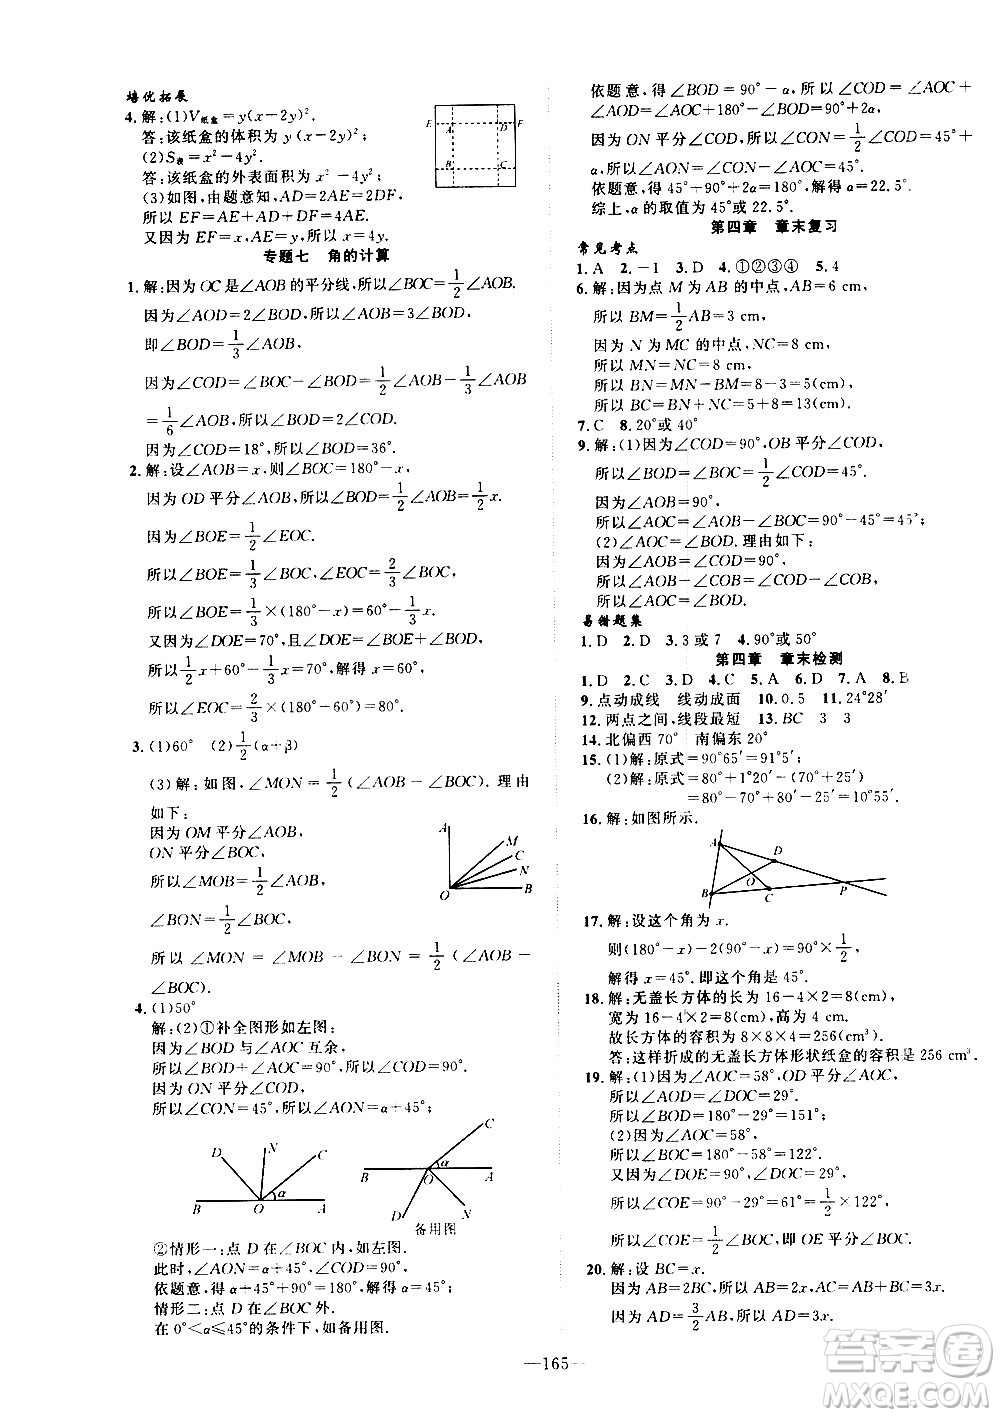 培优拓展
4.解:(1)V纸盒=y(x-2y)².
答:该纸盒的体积为y(x-2y)²;
(2)S表=x²-4y².
答:该纸盒的外表面积为x²-4y²;
(3)如图,由题意知,AD=2AE=2DF,
所以EF=AE+AD+DF=4AE.
又因为EF=x,AE=y,所以x=4y.
E A D F
B C
专题七 角的计算
1.解:因为OC是∠AOB的平分线,所以∠BOC=1/2∠AOB.
因为∠AOD=2∠BOD,所以∠AOB=3∠BOD,
即∠BOD=1/3∠AOB,
因为∠COD=∠BOC-∠BOD=1/2∠AOB-1/3∠AOB
=1/6∠AOB,所以∠BOD=2∠COD.
因为∠COD=18°,所以∠BOD=36°.
2.解:设∠AOB=x,则∠BOC=180°-x,
因为OD平分∠AOB,所以∠BOD=1/2∠AOB=1/2x.
因为∠BOE=1/2∠EOC.
所以∠BOE=1/3∠BOC,∠EOC=2/3∠BOC,
所以∠BOE=1/3×(180°-x)=60°-1/3x.
又因为∠DOE=70°,且∠DOE=∠BOD+∠BOE,
所以1/2x+60°-1/3x=70°,解得x=60°.
所以∠EOC=2/3×(180°-60°)=80°.
3.(1)60° (2)1/2(α+β)
(3)解:如图,∠MON=1/2(∠AOB-∠BOC).理由
如下:
因为OM平分∠AOB,
ON平分∠BOC,
所以∠MOB=1/2∠AOB,
∠BON=1/2∠BOC,
A M C N O B
所以∠MON=∠MOB-∠BON=1/2(∠AOB-
∠BOC).
4.(1)50°
解:(2)①补全图形如左图:
因为∠BOD与∠AOC互余,
所以∠BOD+∠AOC=90°,所以∠COD=90°.
因为ON平分∠COD,
所以∠CON=45°,所以∠AON=α+45°;
D N C α B O A
C α B O A D N
备用图
②情形一:点D在∠BOC内,如左图.
此时,∠AON=α+45°,∠COD=90°,
依题意,得α+45°+90°=180°,解得α=45°.
情形二:点D在∠BOC外.
在0°<α≤45°的条件下,如备用图.
依题意,得∠BOD=90°-α,所以∠COD=∠AOC+
∠AOD=∠AOC+180°-∠BOD=90°+2α,
因为ON平分∠COD,所以∠CON=1/2∠COD=45°+
α,所以∠AON=∠CON-∠AOC=45°.
依题意45°+90°+2α=180°,解得α=22.5°.
综上,α的取值为45°或22.5°.
第四章 章末复习
常见考点
1.A 2.-1 3.D 4.①②③④ 5.4
6.解:因为点M为AB的中点,AB=6 cm,
所以BM=1/2AB=3 cm,
因为N为MC的中点,NC=8 cm,
所以MN=NC=8 cm,
所以BN=MN-BM=8-3=5(cm),
所以BC=BN+NC=5+8=13(cm).
7.C 8.20°或40°
9.解:(1)因为∠COD=90°,OB平分∠COD,
所以∠BOC=∠BOD=1/2∠COD=45°.
因为∠AOB=90°,
所以∠AOC=∠AOB-∠BOC=90°-45°=45°;
(2)∠AOC=∠BOD.理由如下:
因为∠AOB=∠COD=90°,
所以∠AOB-∠COB=∠COD-∠COB,
所以∠AOC=∠BOD.
易错题集
1.D 2.D 3.3或7 4.90°或50°
第四章 章末检测
1.D 2.C 3.D 4.C 5.A 6.D 7.A 8.B
9.点动成线 线动成面 10.0.5 11.24°28′
12.两点之间,线段最短 13.BC 3 3
14.北偏西70° 南偏东20°
15.(1)解:原式=90°65′=91°5′;
(2)解:原式=80°+1°20′-(70°+25′)
=80°-70°+80′-25′=10°55′.
16.解:如图所示.
A D O B C P
17.解:设这个角为x.
则(180°-x)-2(90°-x)=90°×1/2,
解得x=45°.即这个角是45°.
18.解:无盖长方体的长为16-4×2=8(cm),
宽为16-4×2=8(cm),
故长方体的容积为8×8×4=256(cm³).
答:这样折成的无盖长方体形状纸盒的容积是256 cm³.
19.解:(1)因为∠AOC=58°,OD平分∠AOC,
所以∠AOD=∠DOC=29°.
所以∠BOD=180°-29°=151°;
(2)因为∠AOC=58°,
所以∠BOC=180°-58°=122°.
又因为∠DOE=90°,∠DOC=29°,
所以∠COE=90°-29°=61°=1/2×122°.
所以∠COE=1/2∠BOC,即OE平分∠BOC.
20.解:设BC=x.
因为AB=2BC,所以AB=2x,AC=3x.
因为AD=3/2AB,所以AD=3x.
—165—
答案圈
MXQE.COM